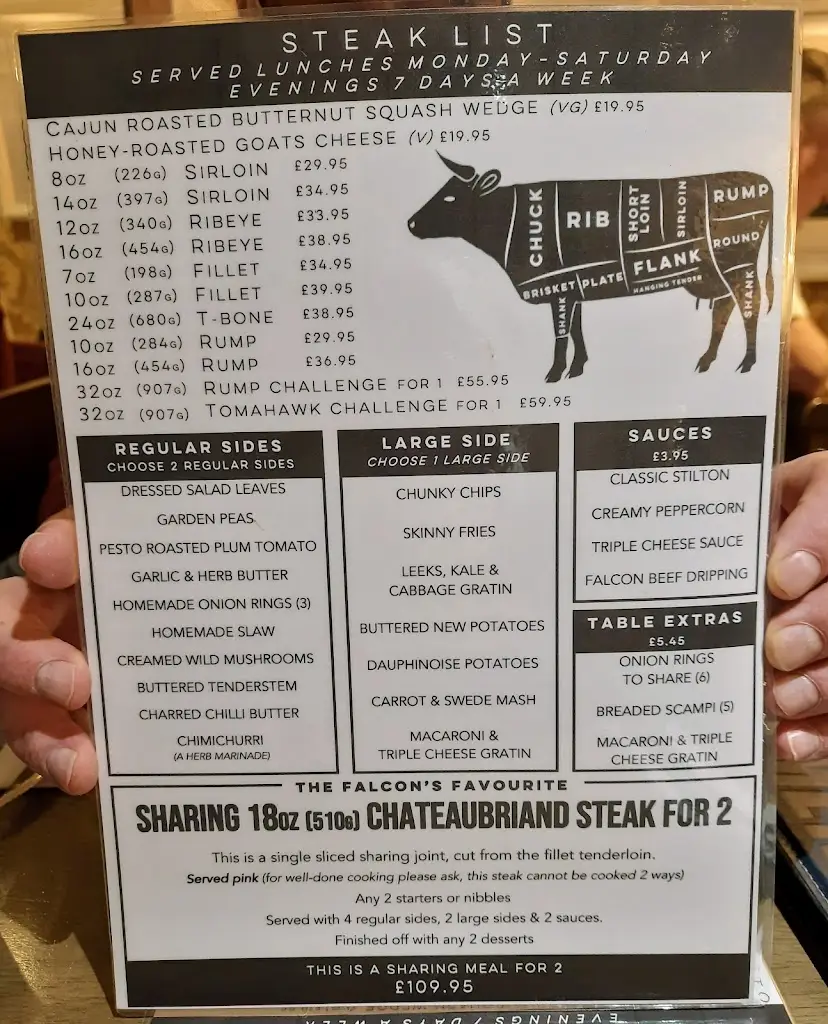 STEAK LIST
SERVED LUNCHES MONDAY-SATURDAY
EVENINGS 7 DAYS A WEEK
CAJUN ROASTED BUTTERNUT SQUASH WEDGE (VG) £19.95
HONEY-ROASTED GOATS CHEESE (V) £19.95
8oz (226G) SIRLOIN £29.95
14oz (397G) SIRLOIN £34.95
12oz (340G) RIBEYE £33.95
16oz (454G) RIBEYE £38.95
7oz (198G) FILLET £34.95
10oz (287G) FILLET £39.95
24oz (680G) T-BONE £38.95
10oz (284G) RUMP £29.95
16oz (454G) RUMP £36.95
32oz (907G) RUMP CHALLENGE FOR 1 £55.95
32oz (907G) TOMAHAWK CHALLENGE FOR 1 £59.95
CHUCK
RIB
SHORT
LOIN
SIRLOIN
RUMP
ROUND
BRISKET
PLATE
FLANK
HANGING TENDER
SHANK
SHANK
REGULAR SIDES
CHOOSE 2 REGULAR SIDES
DRESSED SALAD LEAVES
GARDEN PEAS
PESTO ROASTED PLUM TOMATO
GARLIC & HERB BUTTER
HOMEMADE ONION RINGS (3)
HOMEMADE SLAW
CREAMED WILD MUSHROOMS
BUTTERED TENDERSTEM
CHARRED CHILLI BUTTER
CHIMICHURRI
(A HERB MARINADE)
LARGE SIDE
CHOOSE 1 LARGE SIDE
CHUNKY CHIPS
SKINNY FRIES
LEEKS, KALE &
CABBAGE GRATIN
BUTTERED NEW POTATOES
DAUPHINOISE POTATOES
CARROT & SWEDE MASH
MACARONI &
TRIPLE CHEESE GRATIN
SAUCES
£3.95
CLASSIC STILTON
CREAMY PEPPERCORN
TRIPLE CHEESE SAUCE
FALCON BEEF DRIPPING
TABLE EXTRAS
£5.45
ONION RINGS
TO SHARE (6)
BREADED SCAMPI (5)
MACARONI & TRIPLE
CHEESE GRATIN
THE FALCON'S FAVOURITE
SHARING 18oz (510G) CHATEAUBRIAND STEAK FOR 2
This is a single sliced sharing joint, cut from the fillet tenderloin.
Served pink (for well-done cooking please ask, this steak cannot be cooked 2 ways)
Any 2 starters or nibbles
Served with 4 regular sides, 2 large sides & 2 sauces.
Finished off with any 2 desserts
THIS IS A SHARING MEAL FOR 2
£109.95
EVENINGS 7 DAYS A WEEK